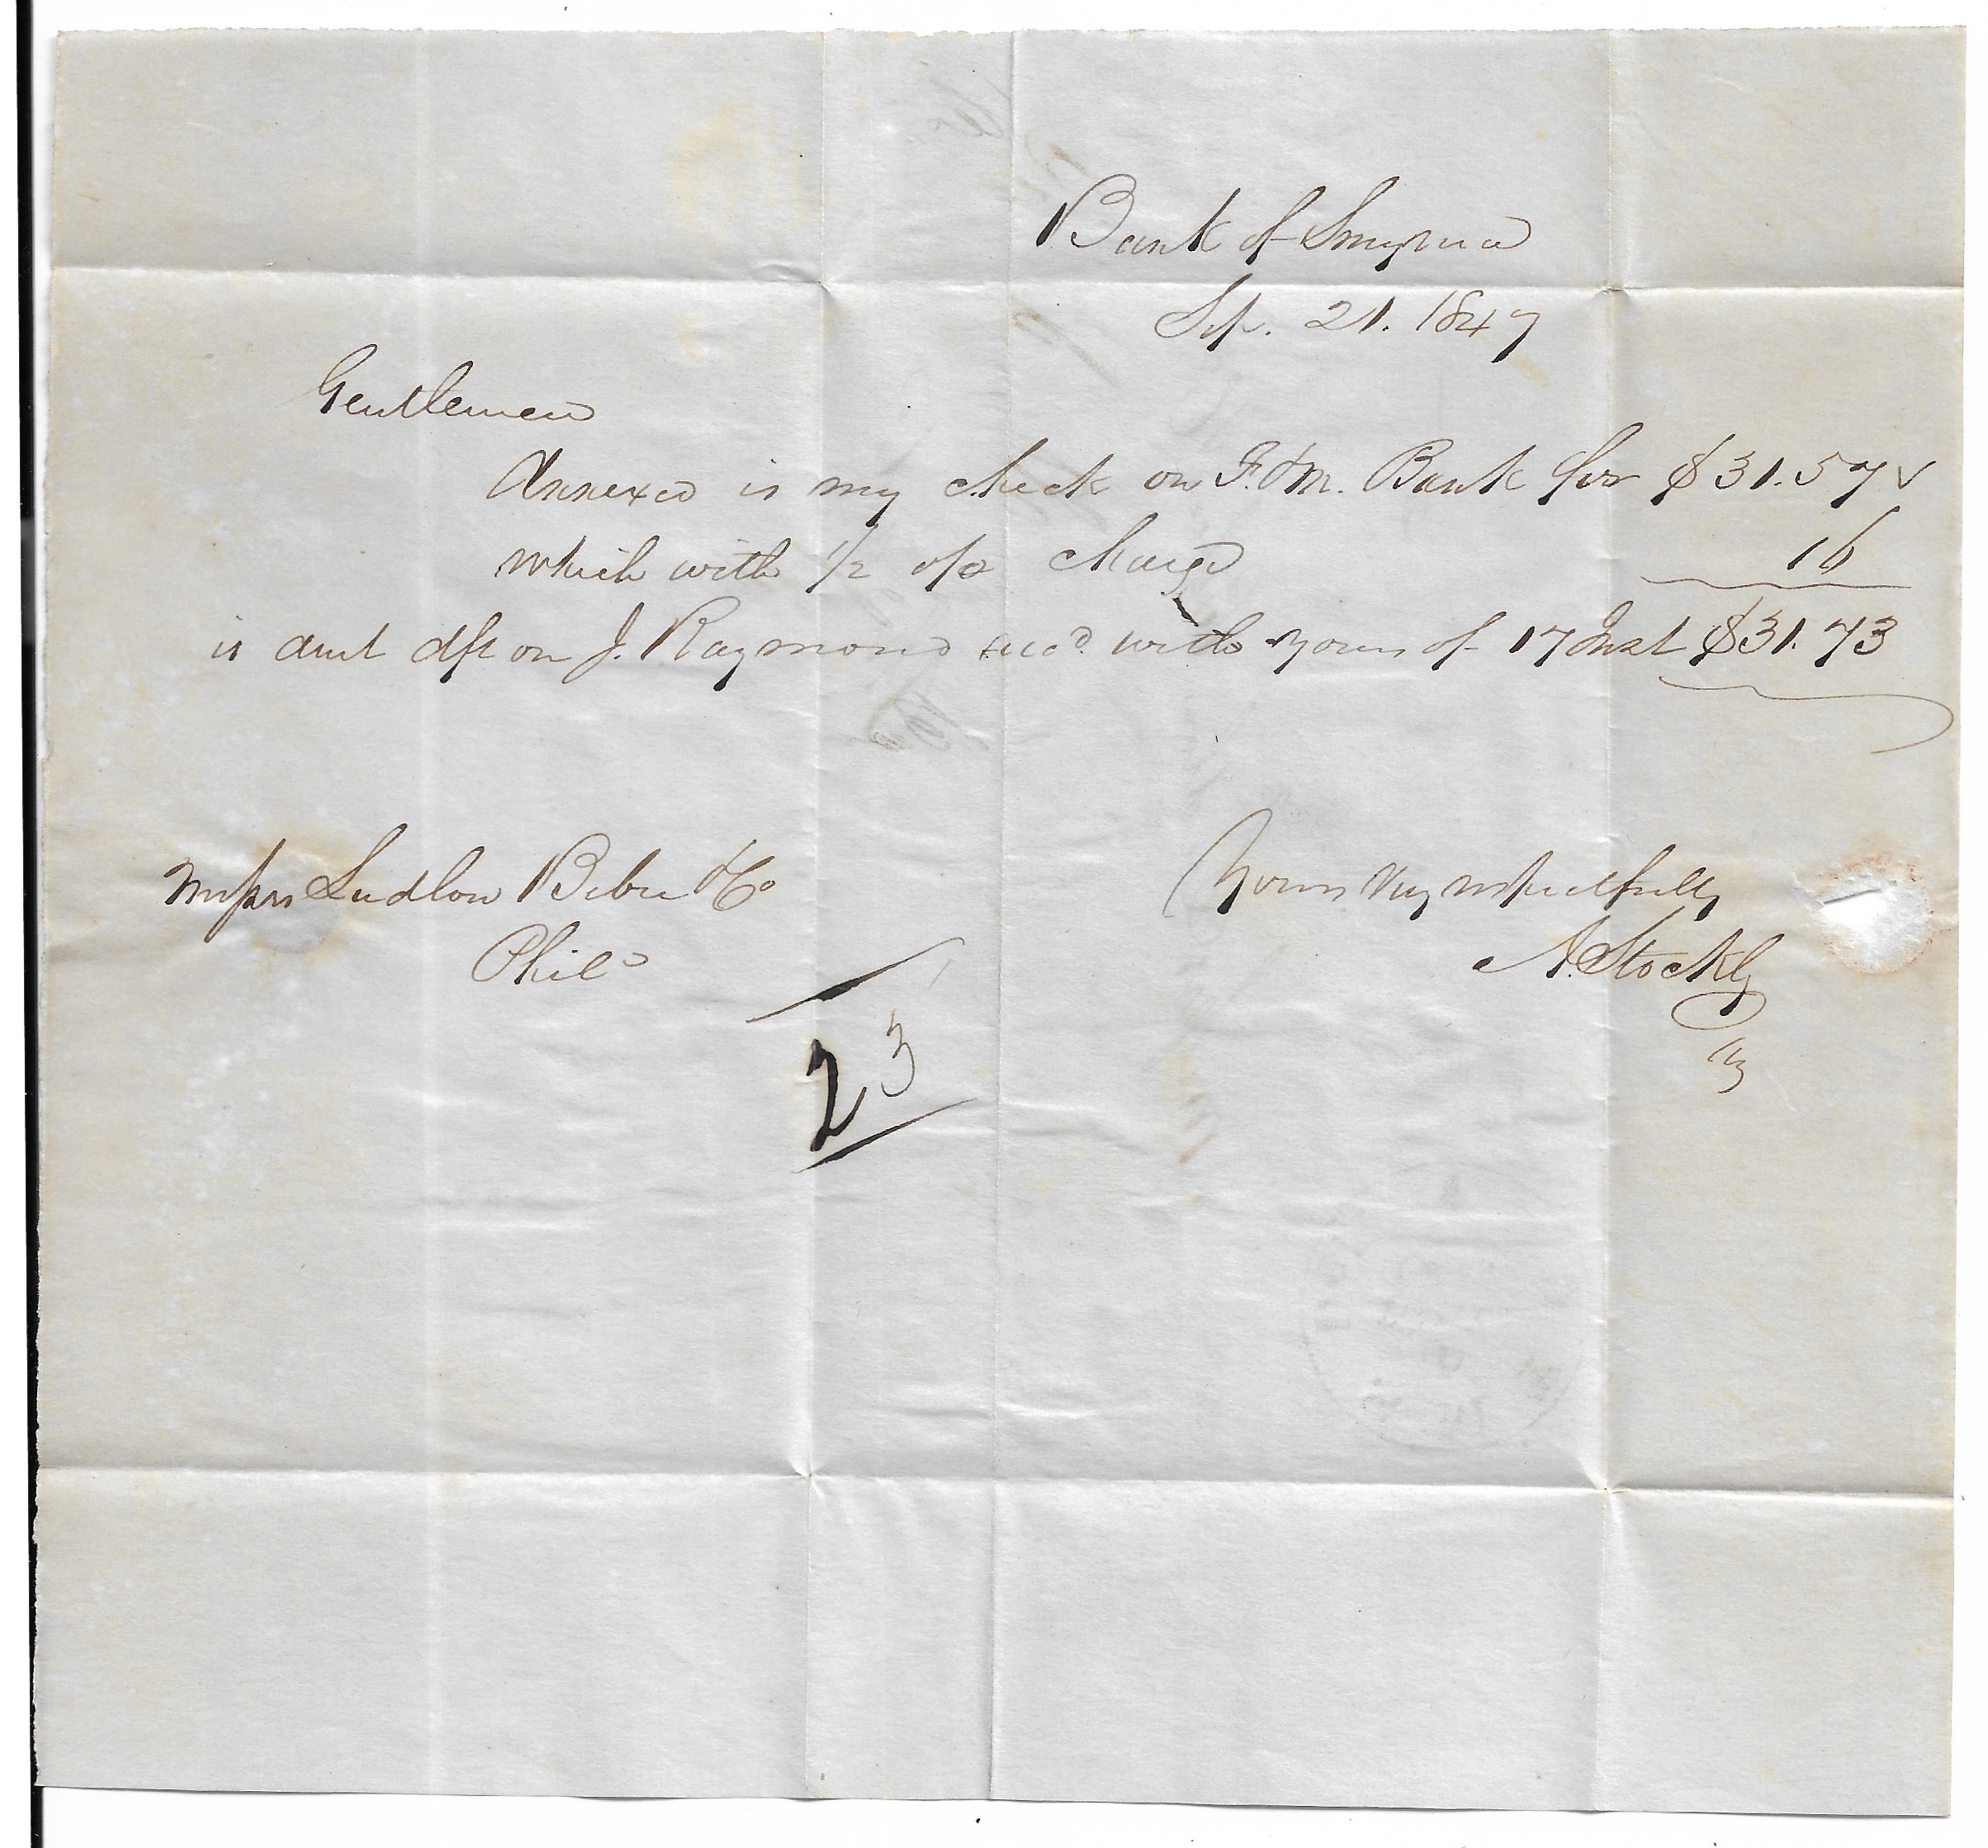 Bank of Smyrna
Sep. 21. 1847
Gentlemen
Annexed is my check on F. & M. Bank for $31.57
which with 1/2 o/o charge 16
is amt dft on J. Raymond recd. with yours of 17 Inst $31.73
Messrs Ludlow Beebe & Co
Phila
Yours Very respectfully
A. Stockly
23